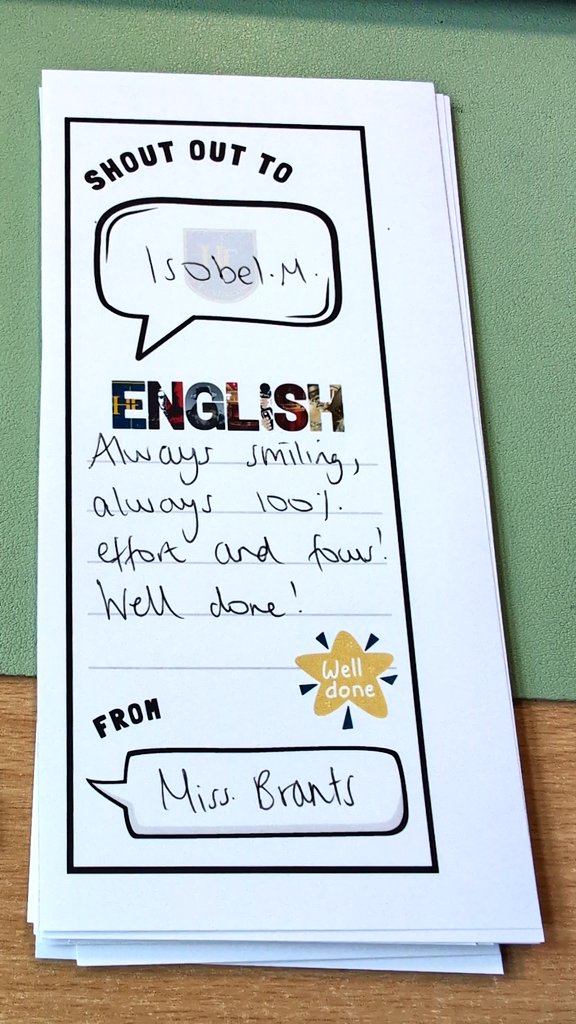 SHOUT OUT TO
Isobel.M.
ENGLISH
Always smiling,
always 100%
effort and focus!
Well done!
Well
done
FROM
Miss. Brants